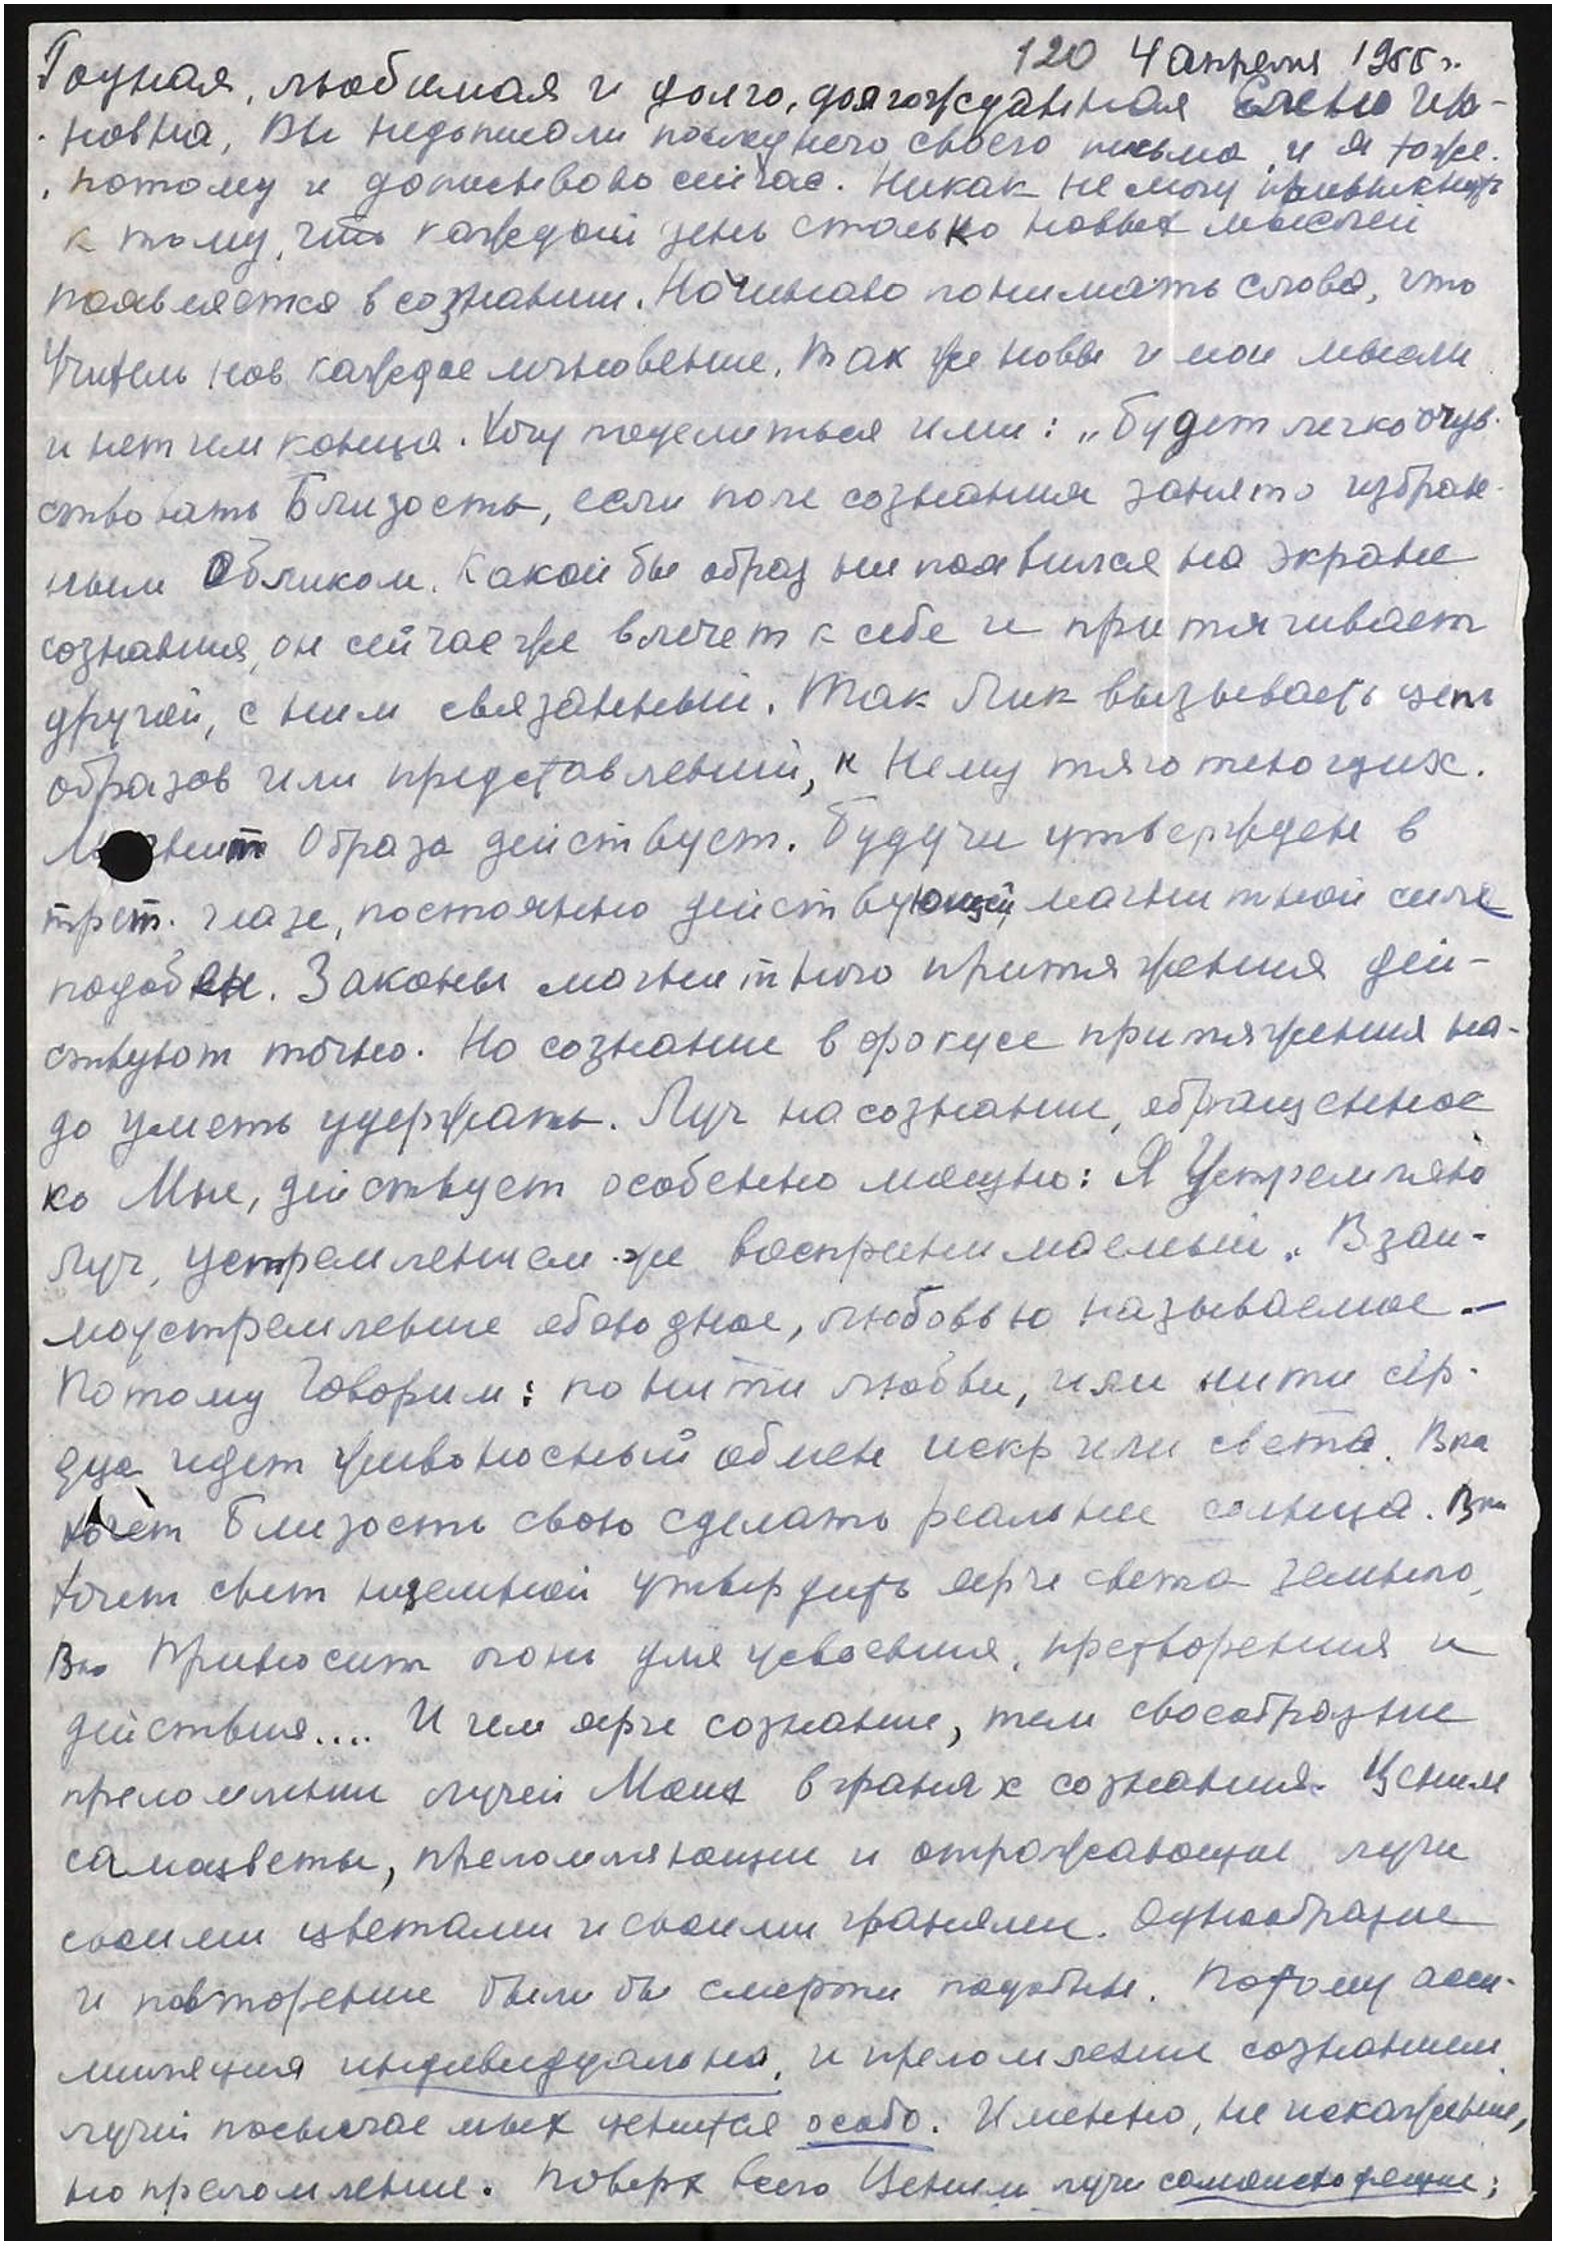 120 4 апреля 1955 г.
Родная, любимая и долго, долгожданная Елена Ива-
новна, Вы недописали последнего своего письма, и я тоже.
потому и дописываю сейчас. Никак не могу привыкнуть
к тому, что каждый день столько новых мыслей
появляется в сознании. Начинаю понимать слова, что
Учитель нов каждое мгновение. Так же новы и мои мысли
и нет им конца. Хочу поделиться ими: „Будет легко очув-
ствовать Близость, если поле сознания занято избран-
ным Обликом. Какой бы образ ни появился на экране
сознания, он сейчас же влечет к себе и притягивает
другой, с ним связанный. Так Лик вызывает цепь
образов или представлений, к Нему тяготеющих.
Магнит Образа действует. Будучи утвержден в
трет. глазе, постоянно действующей магнитной силе
подобен. Законы магнитного притяжения дей-
ствуют точно. Но сознание в фокусе притяжения на-
до уметь удержать. Луч на сознание, обращенное
ко Мне, действует особенно мощно: Я Устремляю
Луч, устремлением же воспринимаемый. Взаи-
моустремление обоюдное, любовью называемое.—
Потому Говорим: по нити любви, или нити сер-
дца идет живоносный обмен искр или света. Вка
хочет Близость свою сделать реальнее солнца. Вка
хочет свет неземной утвердить ярче света земного,
Вка Приносит огонь для усвоения, претворения и
действия.... И чем ярче сознание, тем своеобразнее
преломление лучей Моих в гранях сознания. Ценим
самоцветы, преломляющие и отражающие лучи
своими цветами и своими гранями. Однообразие
и повторение были бы смерти подобны. Потому асси-
миляция индивидуальна, и преломление сознанием
лучей посылаемых ценится особо. Именно, не искажение,
но преломление. Поверх всего Ценим лучи самоисходящие;